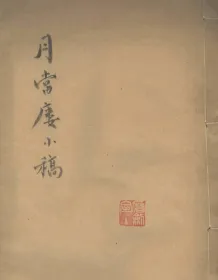 月當廔小稿